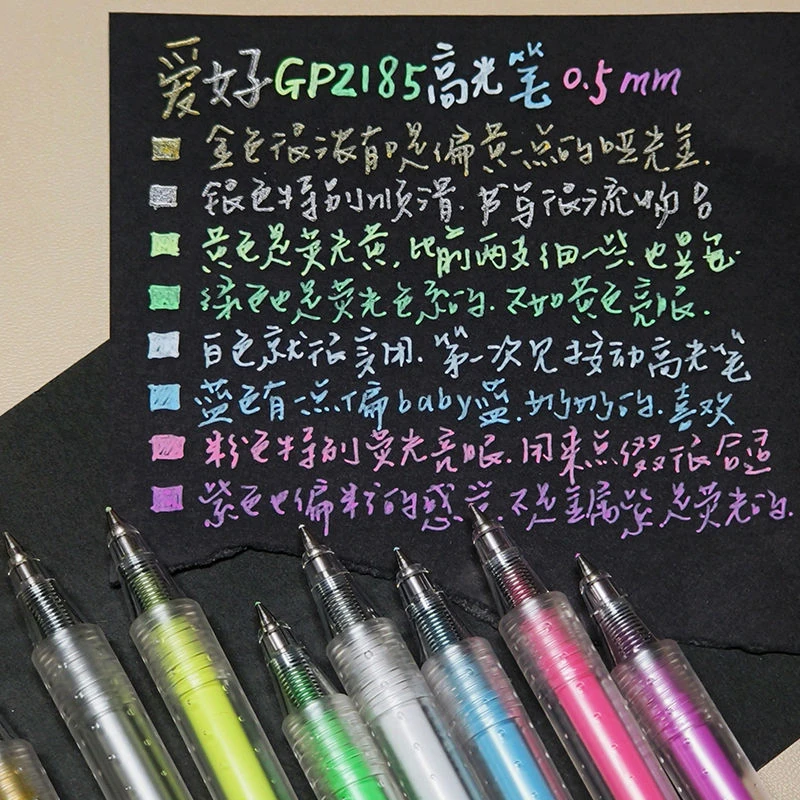 爱好GP2185高光笔 0.5mm
金色很浓有哎是偏黄一点的哑光金.
银色特别顺滑.书写很流畅
黄色是荧光黄,比前两支细一些.也是色
绿色也是荧光色系的.不如黄色亮眼.
白色就很实用.第一次见按动高光笔
蓝色有一点偏baby蓝.奶奶的.喜欢
粉色特别荧光亮眼.用来点缀很合适
紫色也偏粉的感觉.不是金属紫.是荧光的.